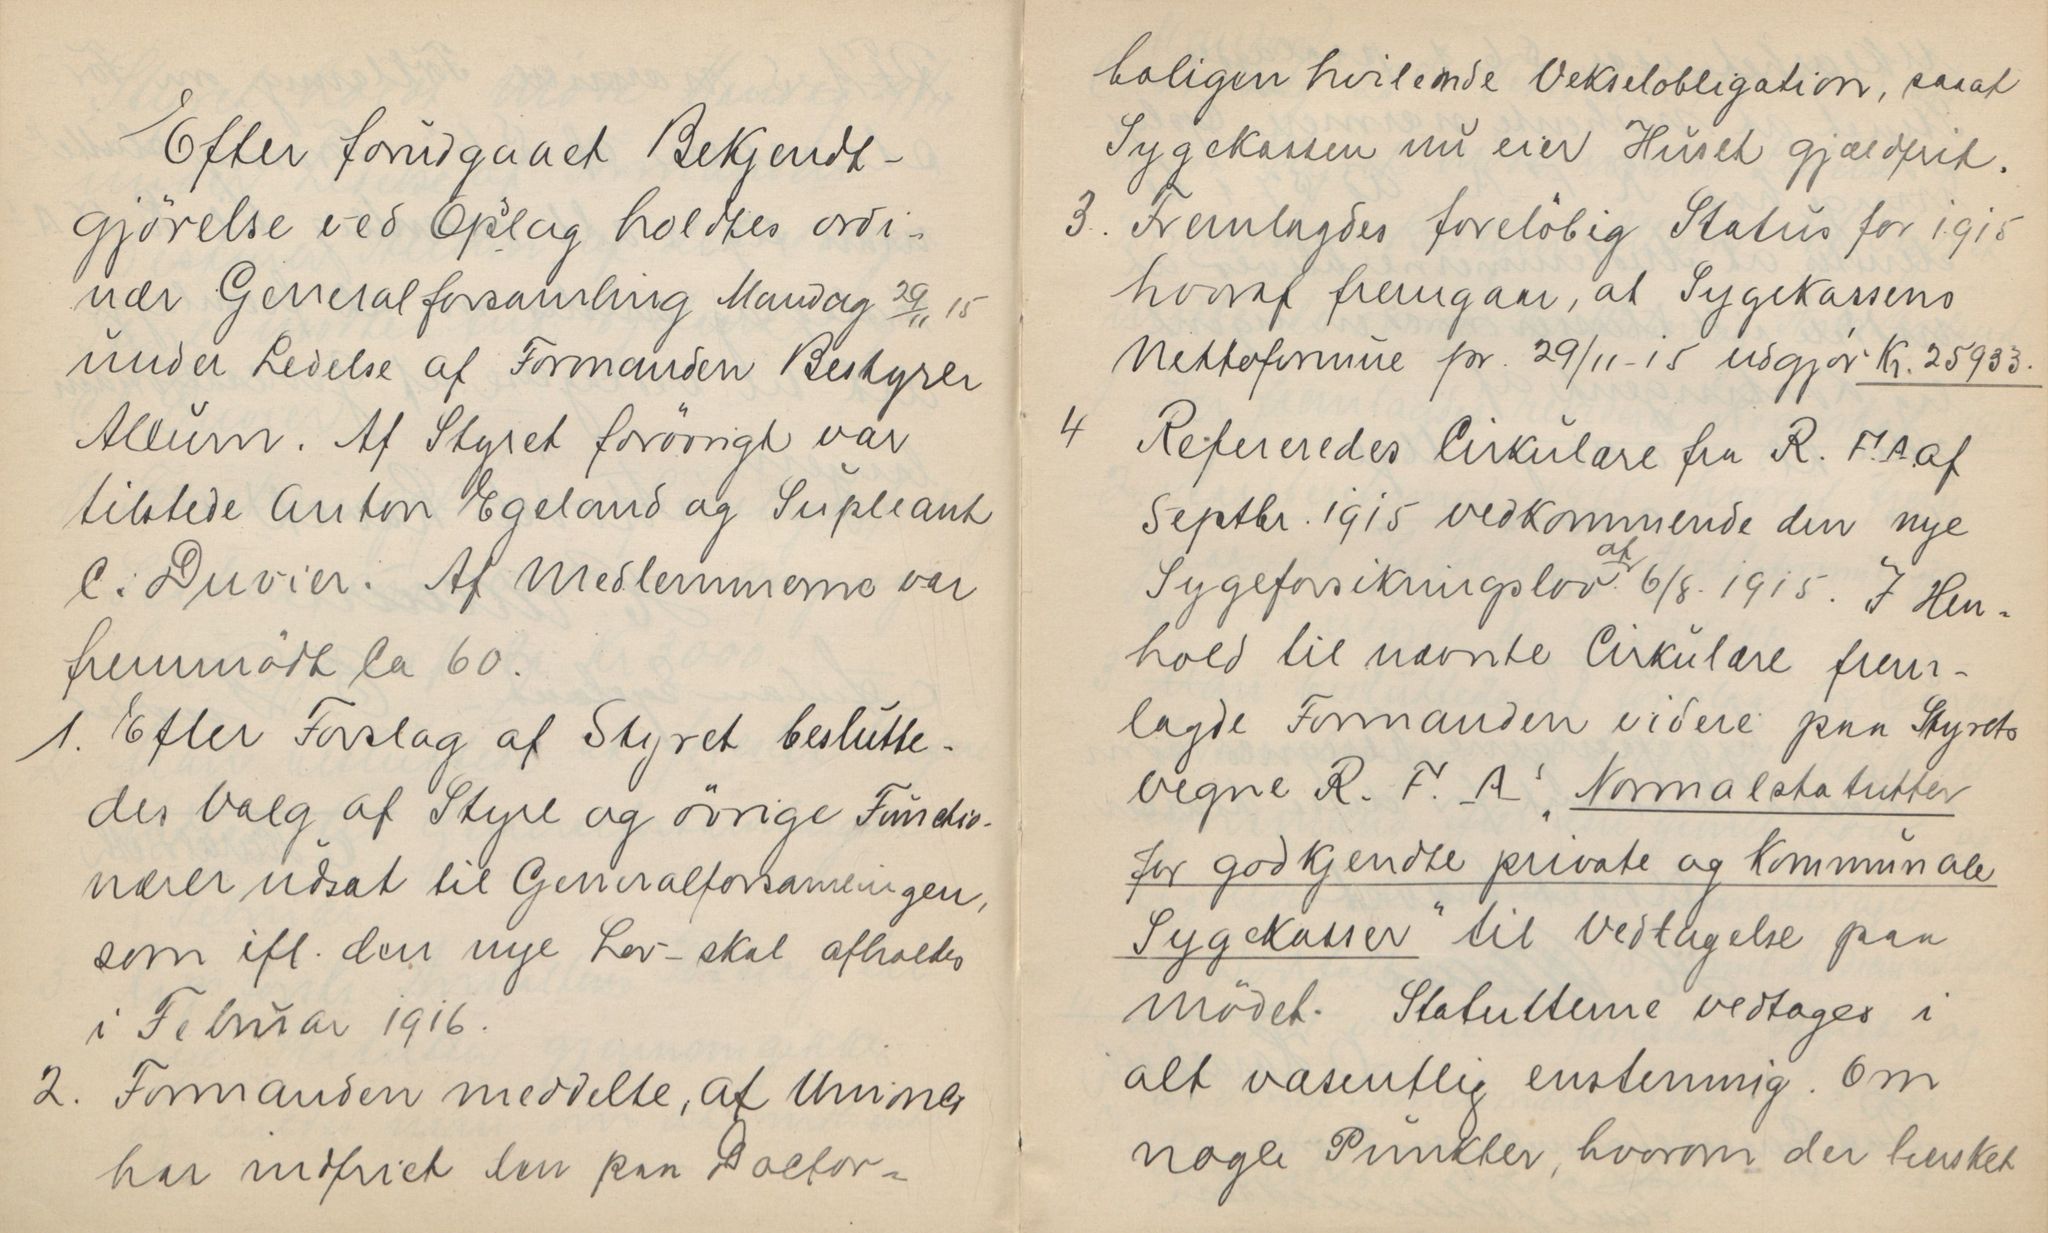 Efter forudgaaet Bekjendt-
gjörelse ved Opslag holdtes ordi-
nær Generalforsamling Mandag 29/11 15
under Ledelse af Formanden Bestyrer
Allum. Af Styret forövrigt var
tilstede Anton Egeland og Supleant
C. Duvier. Af Medlemmerne var
fremmödt Ca 60.
1. Efter Forslag af Styret beslutte-
des Valg af Styre og övrige Functio-
nærer udsat til Generalforsamlingen,
som ifl. den nye Lov - skal afholdes
i Februar 1916.
2. Formanden meddelte, at Unionen
har indfriet den paa Doctor-
boligen hvilende Vekselobligation, saaat
Sygekassen nu eier Huset gjældfrit.
3. Fremlagdes foreløbig Status for 1915
hvoraf fremgaar, at Sygekassens
Nettoformue pr. 29/11-15 udgjør Kr. 25933.
4 Refereredes Cirkulære fra R. F. A. af
Septbr. 1915 vedkommende den nye
Sygeforsikringslov af 6/8. 1915. I Hen-
hold til nævnte Cirkulære frem-
lagde Formanden videre paa Styrets
vegne R. F. A' „Normalstatutter
for godkjendte private og Kommunale
Sygekasser" til Vedtagelse paa
Mödet. Statutterne vedtages i
alt væsentlig enstemmig. Om
nogle Punkter, hvorom der hersket